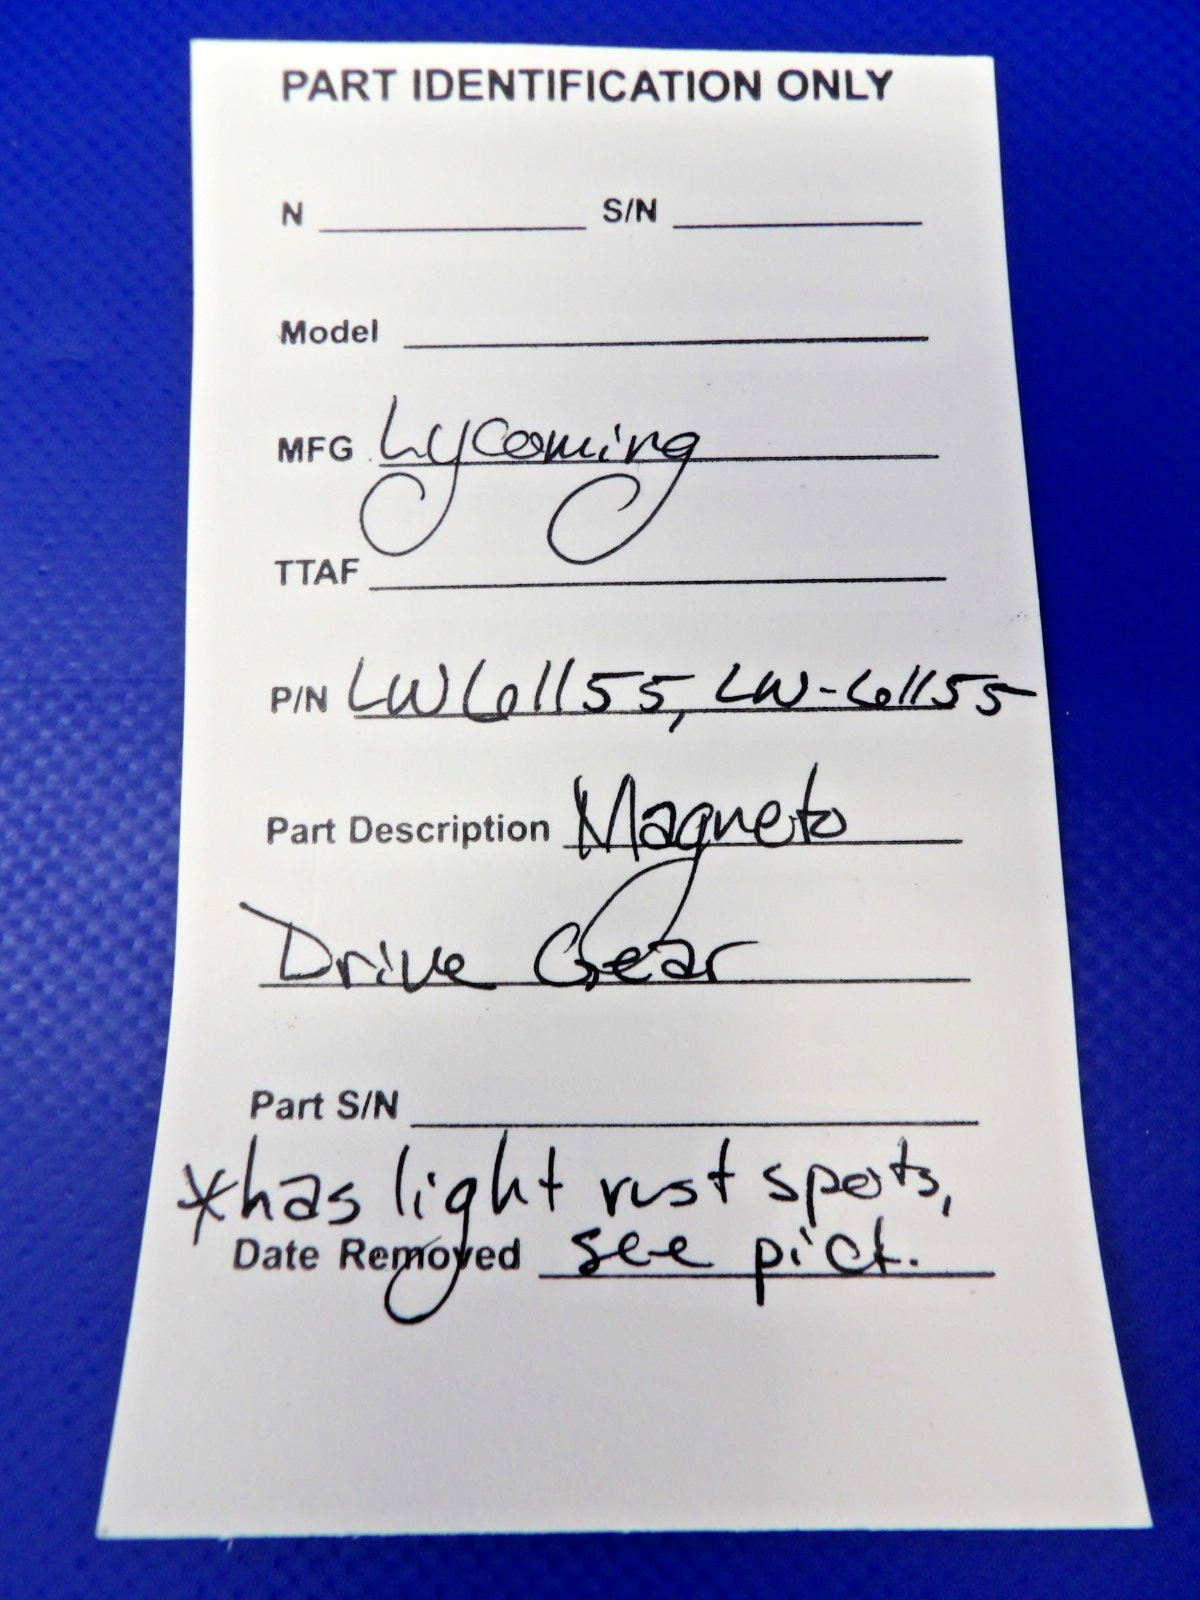 PART IDENTIFICATION ONLY
N S/N
Model
MFG Lycoming
TTAF
P/N LW61155, LW-61155
Part Description Magneto
Drive Gear
Part S/N
*has light rust spots,
Date Removed see pict.